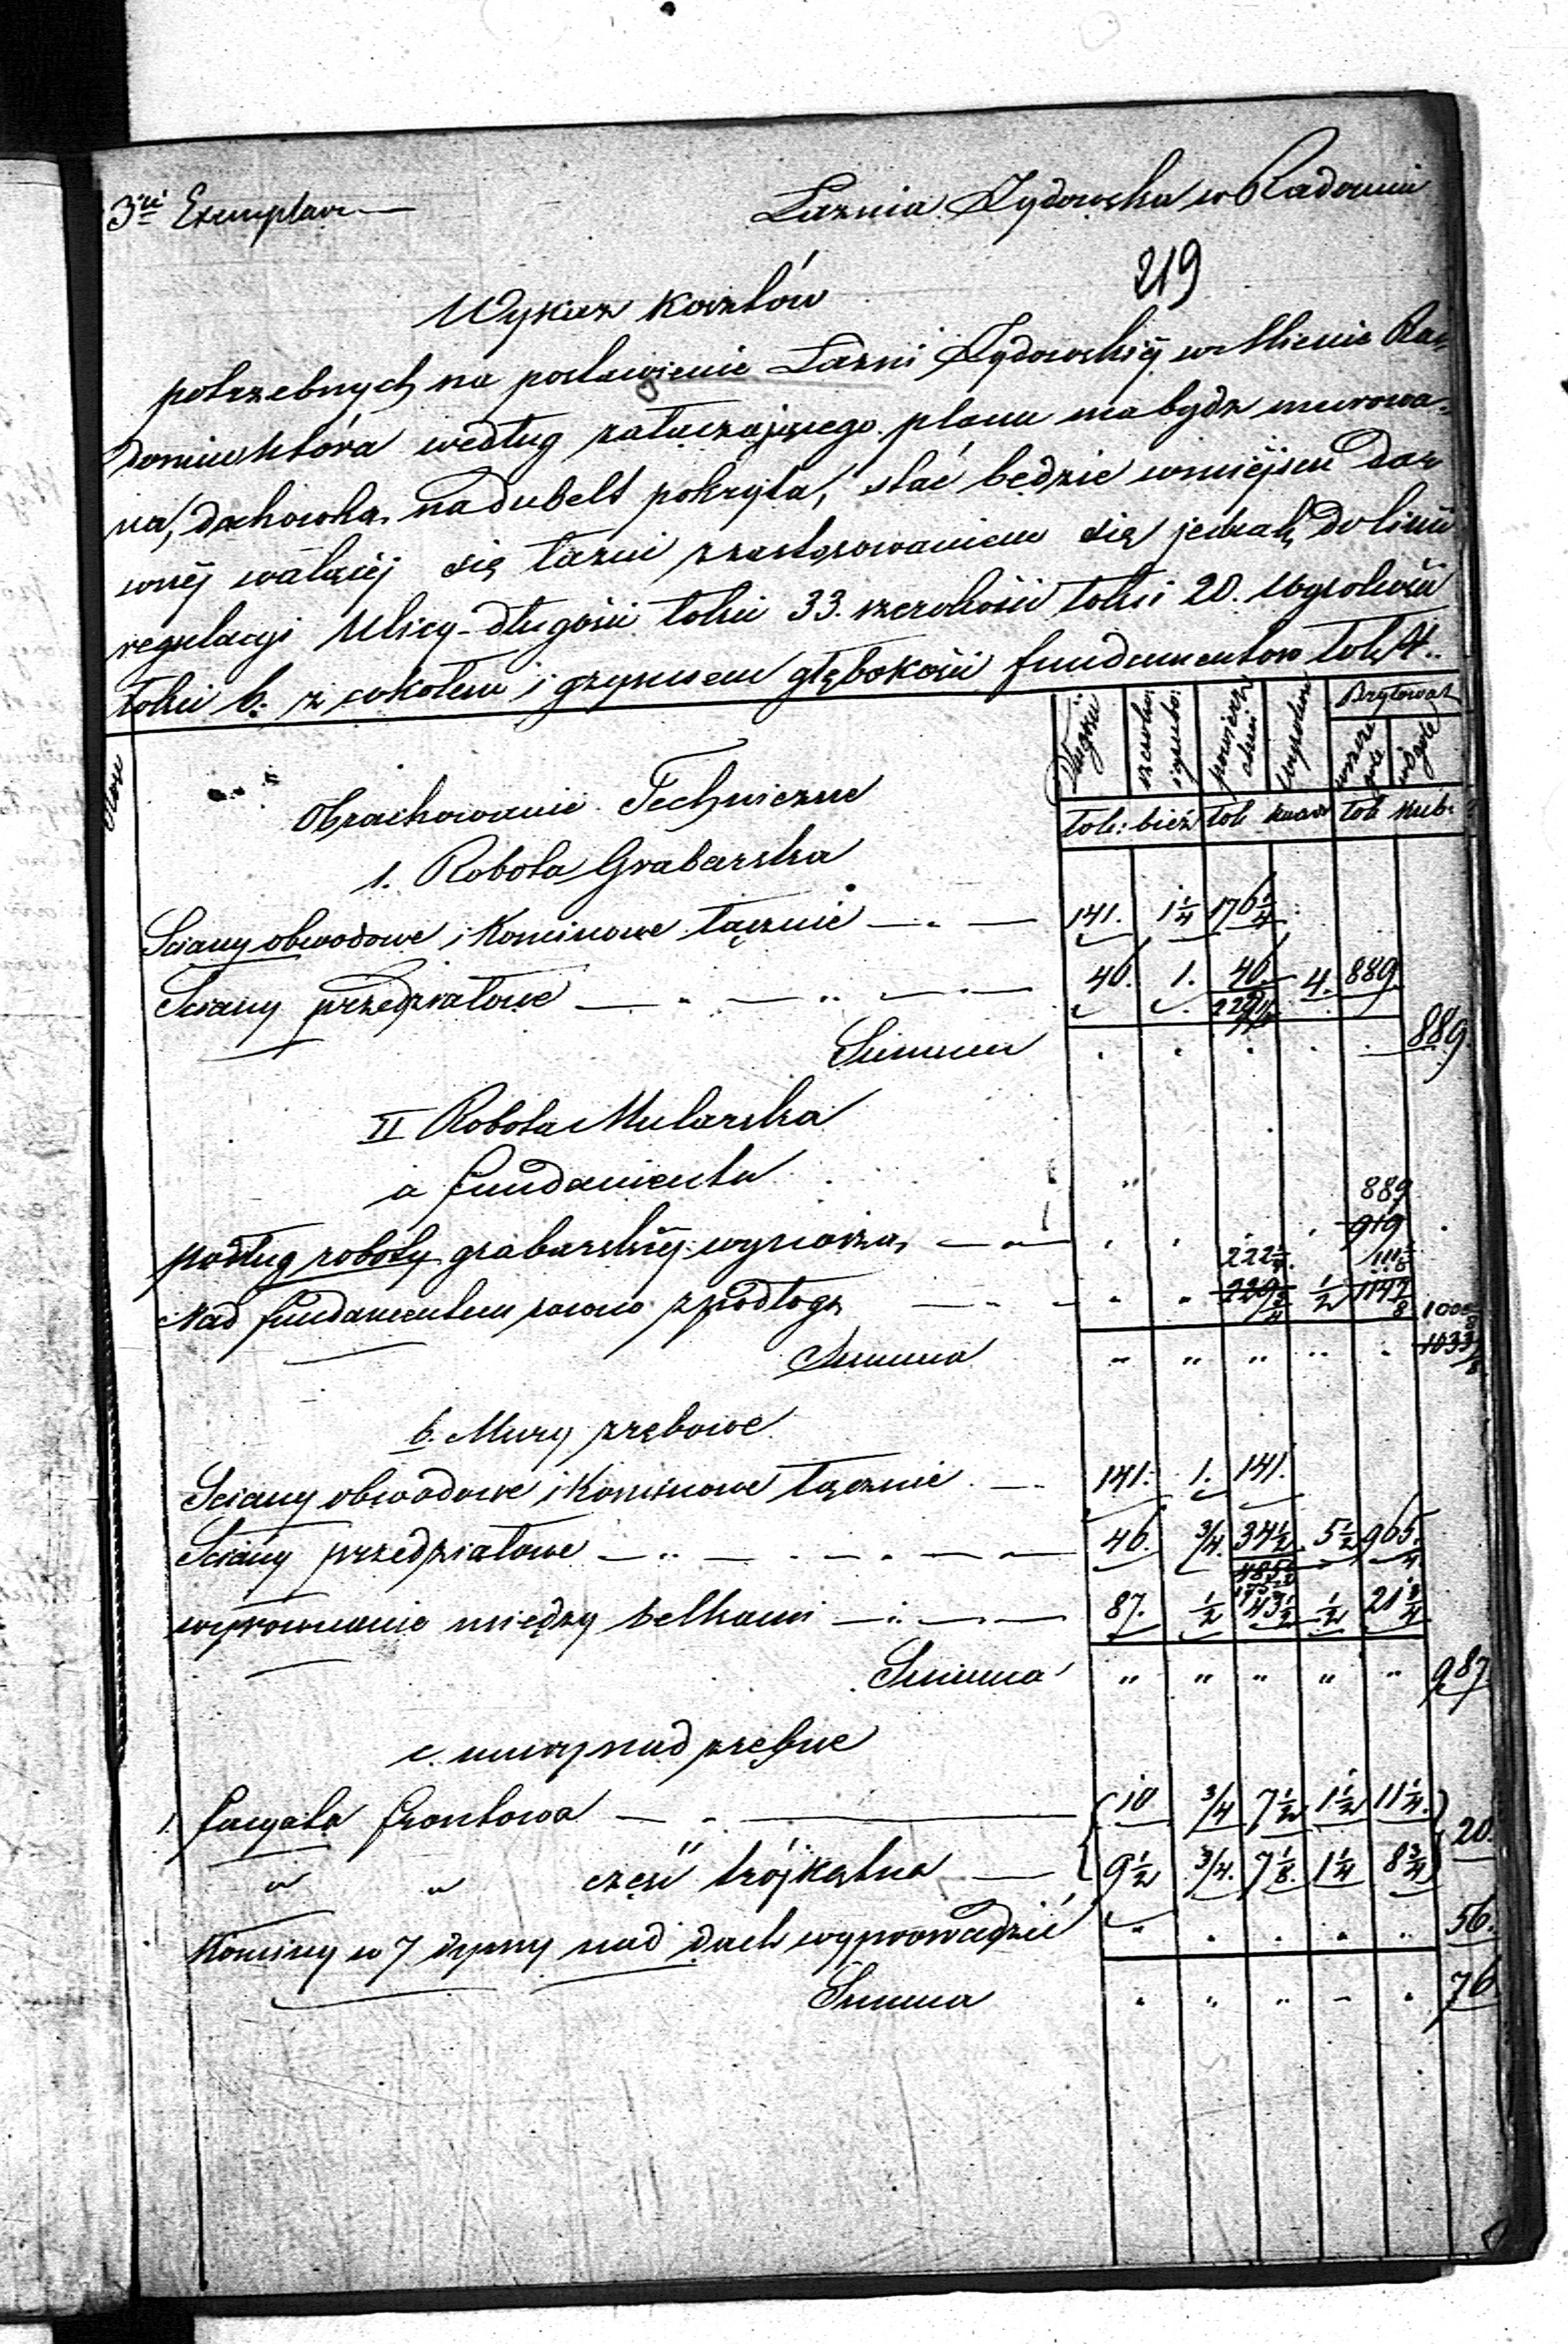 3ci Exemplarz
Łaznia Żydowska w Radomiu
219
Wykaz Kosztów
potrzebnych na postawienie Łazni Żydowskiéj w Mieście Ra-
domiu która według załączającego planu ma bydź murowa-
na, dachówką na dubelt pokryta, stać będzie w miejscu daw
wnéj walącéj się łazni z zastosowaniem się jednak do linii
regulacyi Ulicy długości łokci 33. szerokości łokci 20. Wysokości
łokci 6. z cokołem i gzymsem głębokości fundamentow łok: 4.
Długość szerokość powierzchni Wysokość Brytowat
łok: bież łok kwadr łok kub:
Obrachowanie Techniczne
1. Robota Grabarska
Sciany obwodowe i Kominowe łącznie 141. 1 1/4 176 1/4
Sciany przedziałowe 46. 1. 46. 4. 889.
Summa 889
II Robota Mularska
a fundamenta
889
podług roboty grabarskiéj wynoszą 919
222 1/4 111 1/8
Nad fundamentem równo z podłogą 229 3/4 1/2 114 7/8 1000
Summa 1033
b. Mury zrębowe
Sciany obwodowe i Kominowe łącznie 141. 1. 141.
Sciany przedziałowe 46. 3/4 34 1/2 5 1/2 965 1/4
wyrownanie między belkami 87. 1/2 43 1/2 1/2 21 3/4
Summa 987
c. mury nad zrębne
1. facyata frontowa 10 3/4 7 1/2 1 1/2 11 1/4
20.
" " część trójkątna 9 1/2 3/4 7 1/8 1 1/4 8 3/4
Kominy w 7 dymy nad dach wyprowadzić 56.
Summa 76